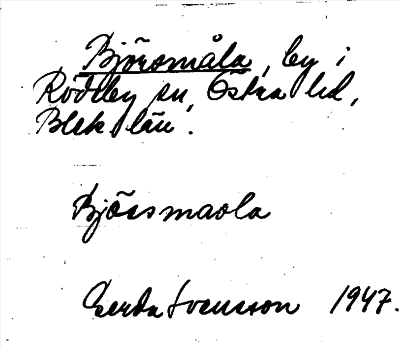 Björsmåla, by i
Rödeby sn, Östra hd,
Blek län.
Björssmaola
Gerda Svensson 1947.